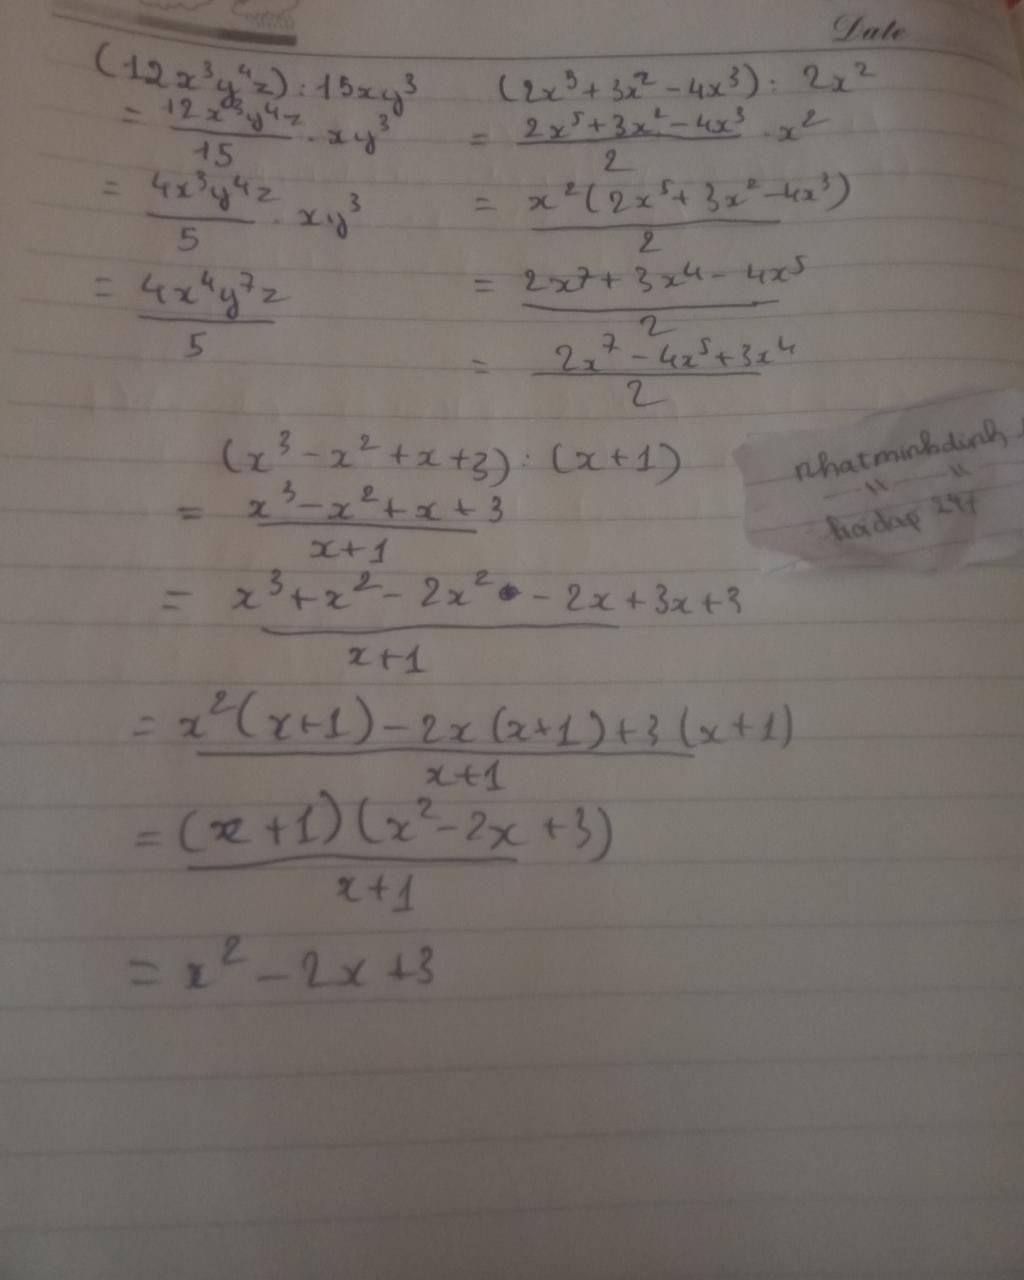 Date
(12x³y⁴z) : 15xy³
= 12x³y⁴z / 15 . xy³
= 4x³y⁴z / 5 . xy³
= 4x⁴y⁷z / 5
(2x⁵ + 3x² - 4x³) : 2x²
= 2x⁵ + 3x² - 4x³ / 2 . x²
= x²(2x⁵ + 3x² - 4x³) / 2
= 2x⁷ + 3x⁴ - 4x⁵ / 2
= 2x⁷ - 4x⁵ + 3x⁴ / 2
(x³ - x² + x + 3) : (x + 1)
= x³ - x² + x + 3 / x + 1
= x³ + x² - 2x² - 2x + 3x + 3 / x + 1
= x²(x + 1) - 2x(x + 1) + 3(x + 1) / x + 1
= (x + 1)(x² - 2x + 3) / x + 1
= x² - 2x + 3
nhatminhdinh
hoidap 247